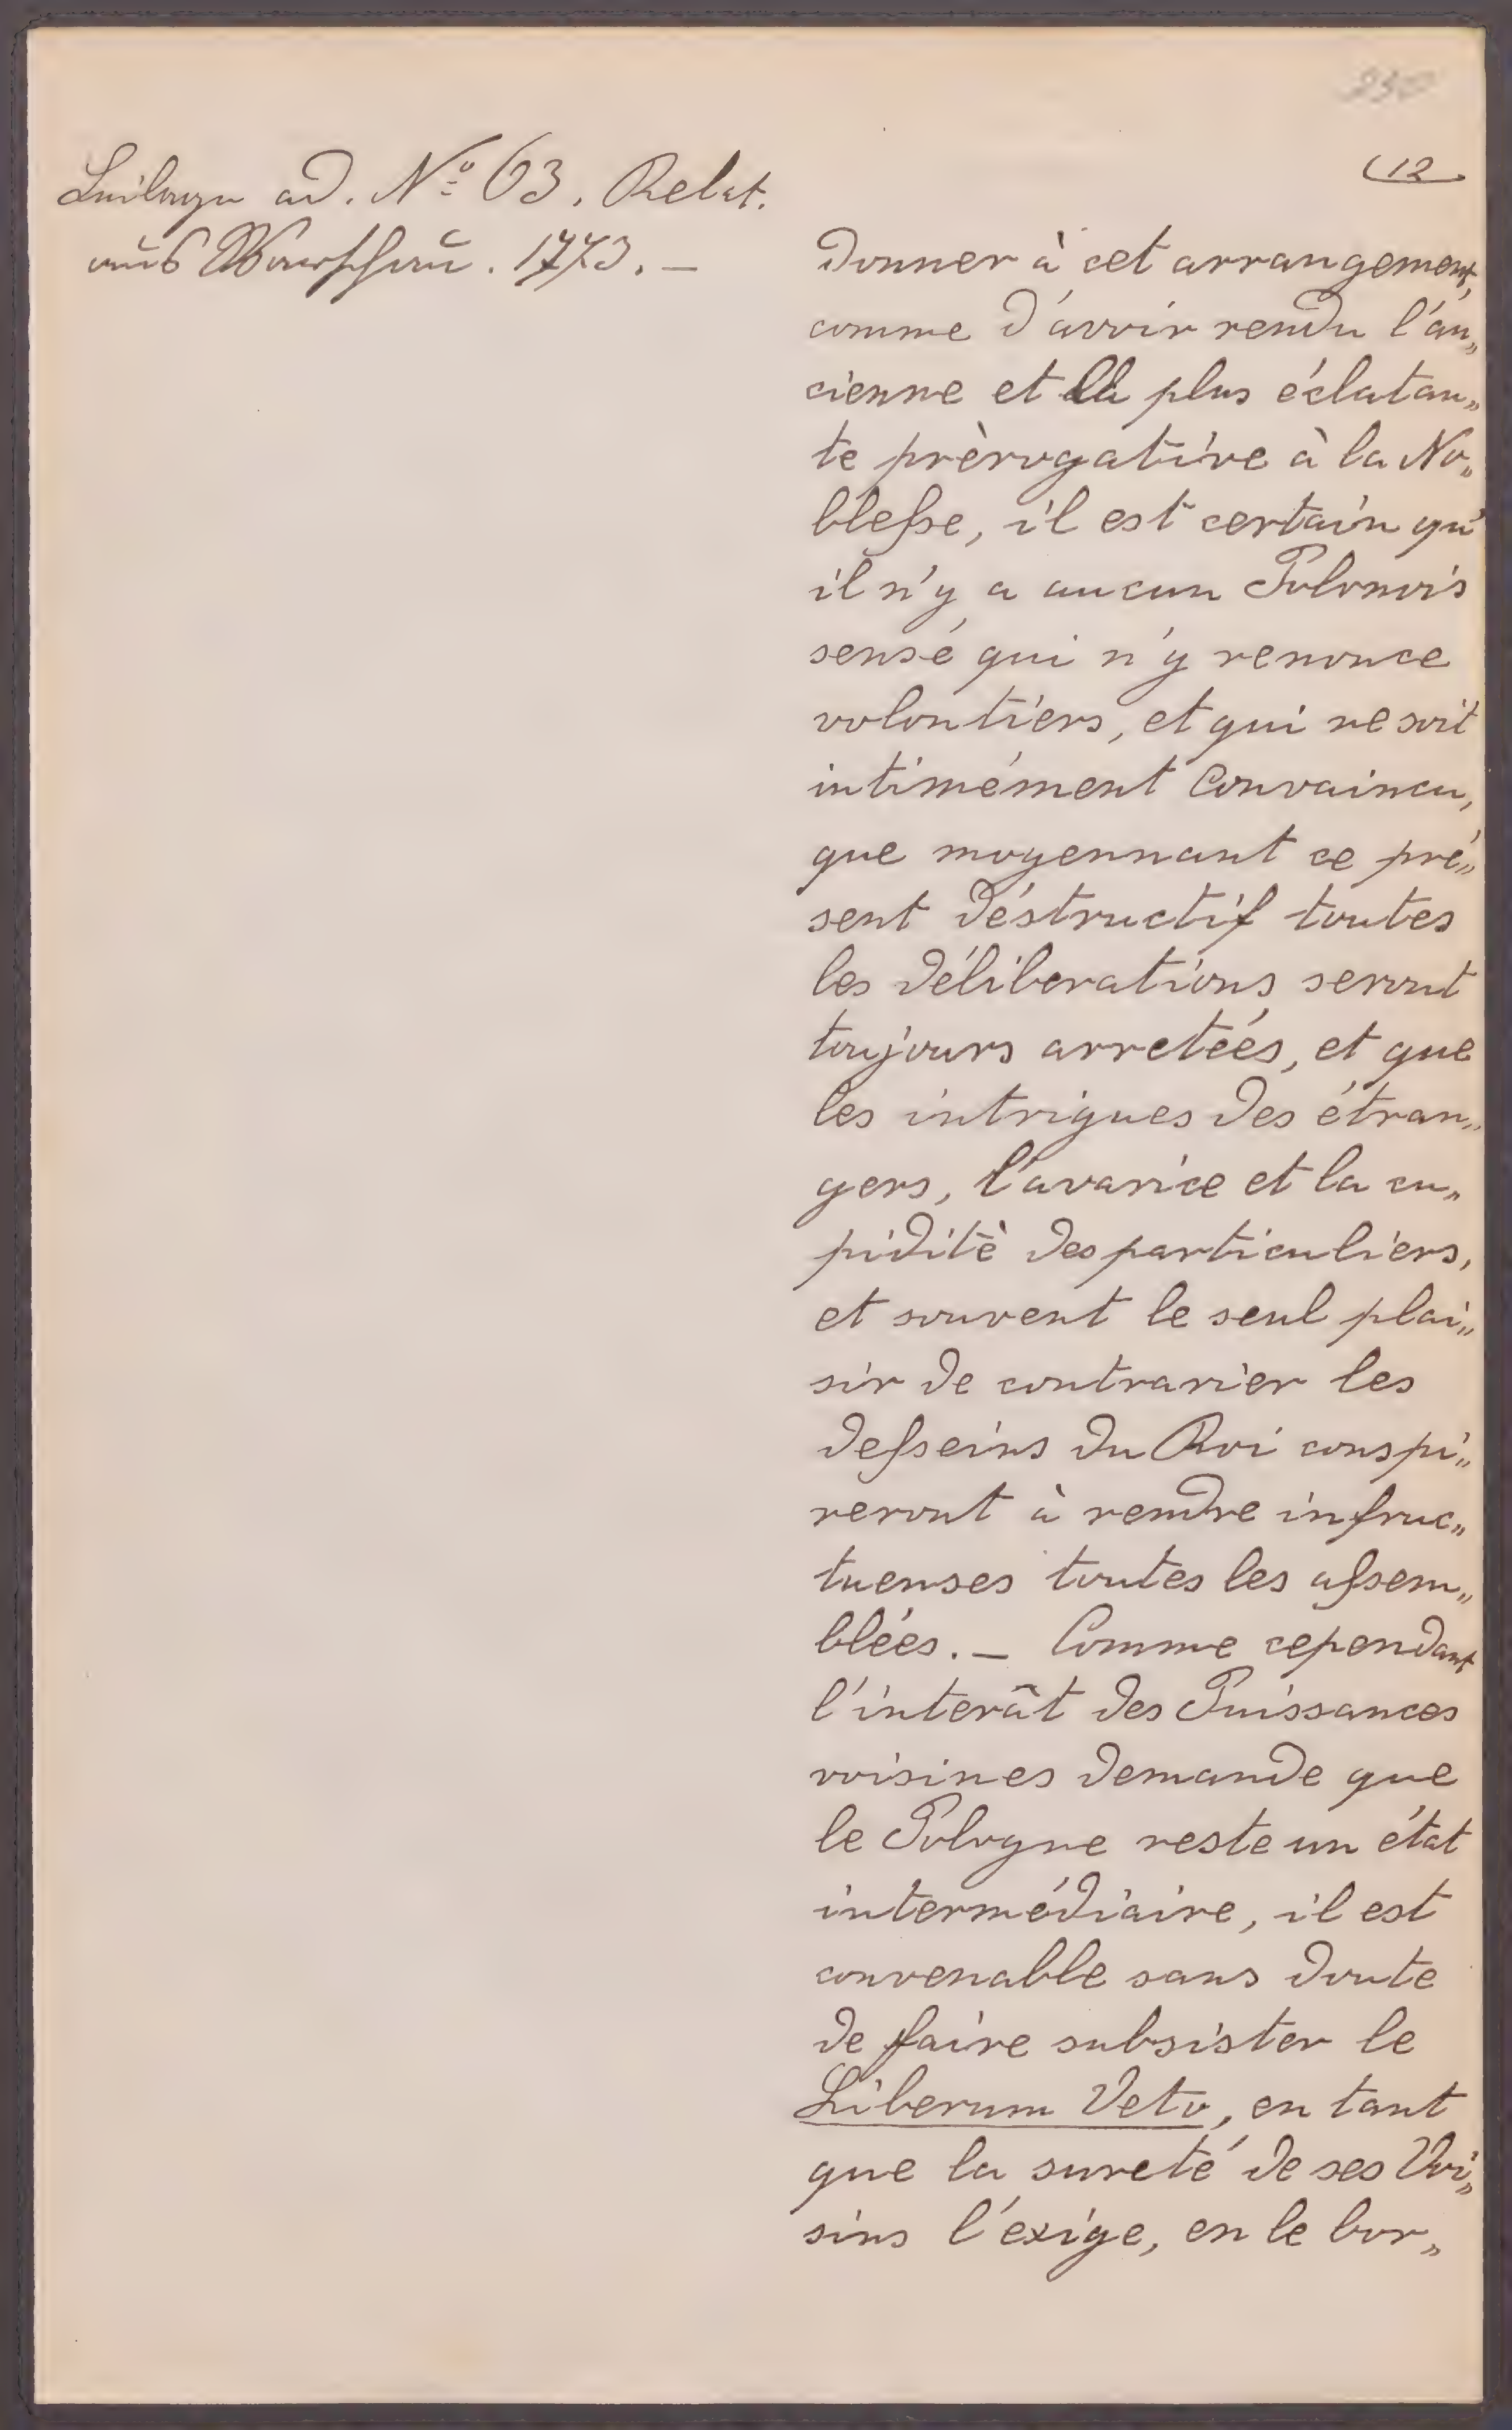 230
(12.
Beilage ad. Nº 63. Relat.
aus Warschau. 1773. —
donner à cet arrangement,
comme d'avoir rendu l'an„
cienne et la plus éclatan„
te prèrogative à la No„
blesse, il est certain qu'
il n'y a aucun Polonois
sensé qui n'y renonce
volontiers, et qui ne soit
intimément Convaincu,
que moyennant ce pré„
sent déstructif toutes
les déliberations seront
toujours arretéés, et que
les intrigues des étran„
gers, l'avarice et la cu„
pidité des particuliers,
et souvent le seul plai„
sir de contrarier les
desseins du Roi conspi„
reront à rendre infruc„
tuenses toutes les assem„
blées. — Comme cependant
l'interât des Puissances
voisines demande que
le Pologne reste un état
intermédiaire, il est
convenable sans doute
de faire subsister le
Liberum Veto, en tant
que la sureté de ses Voi„
sins l'éxige, en le bor„